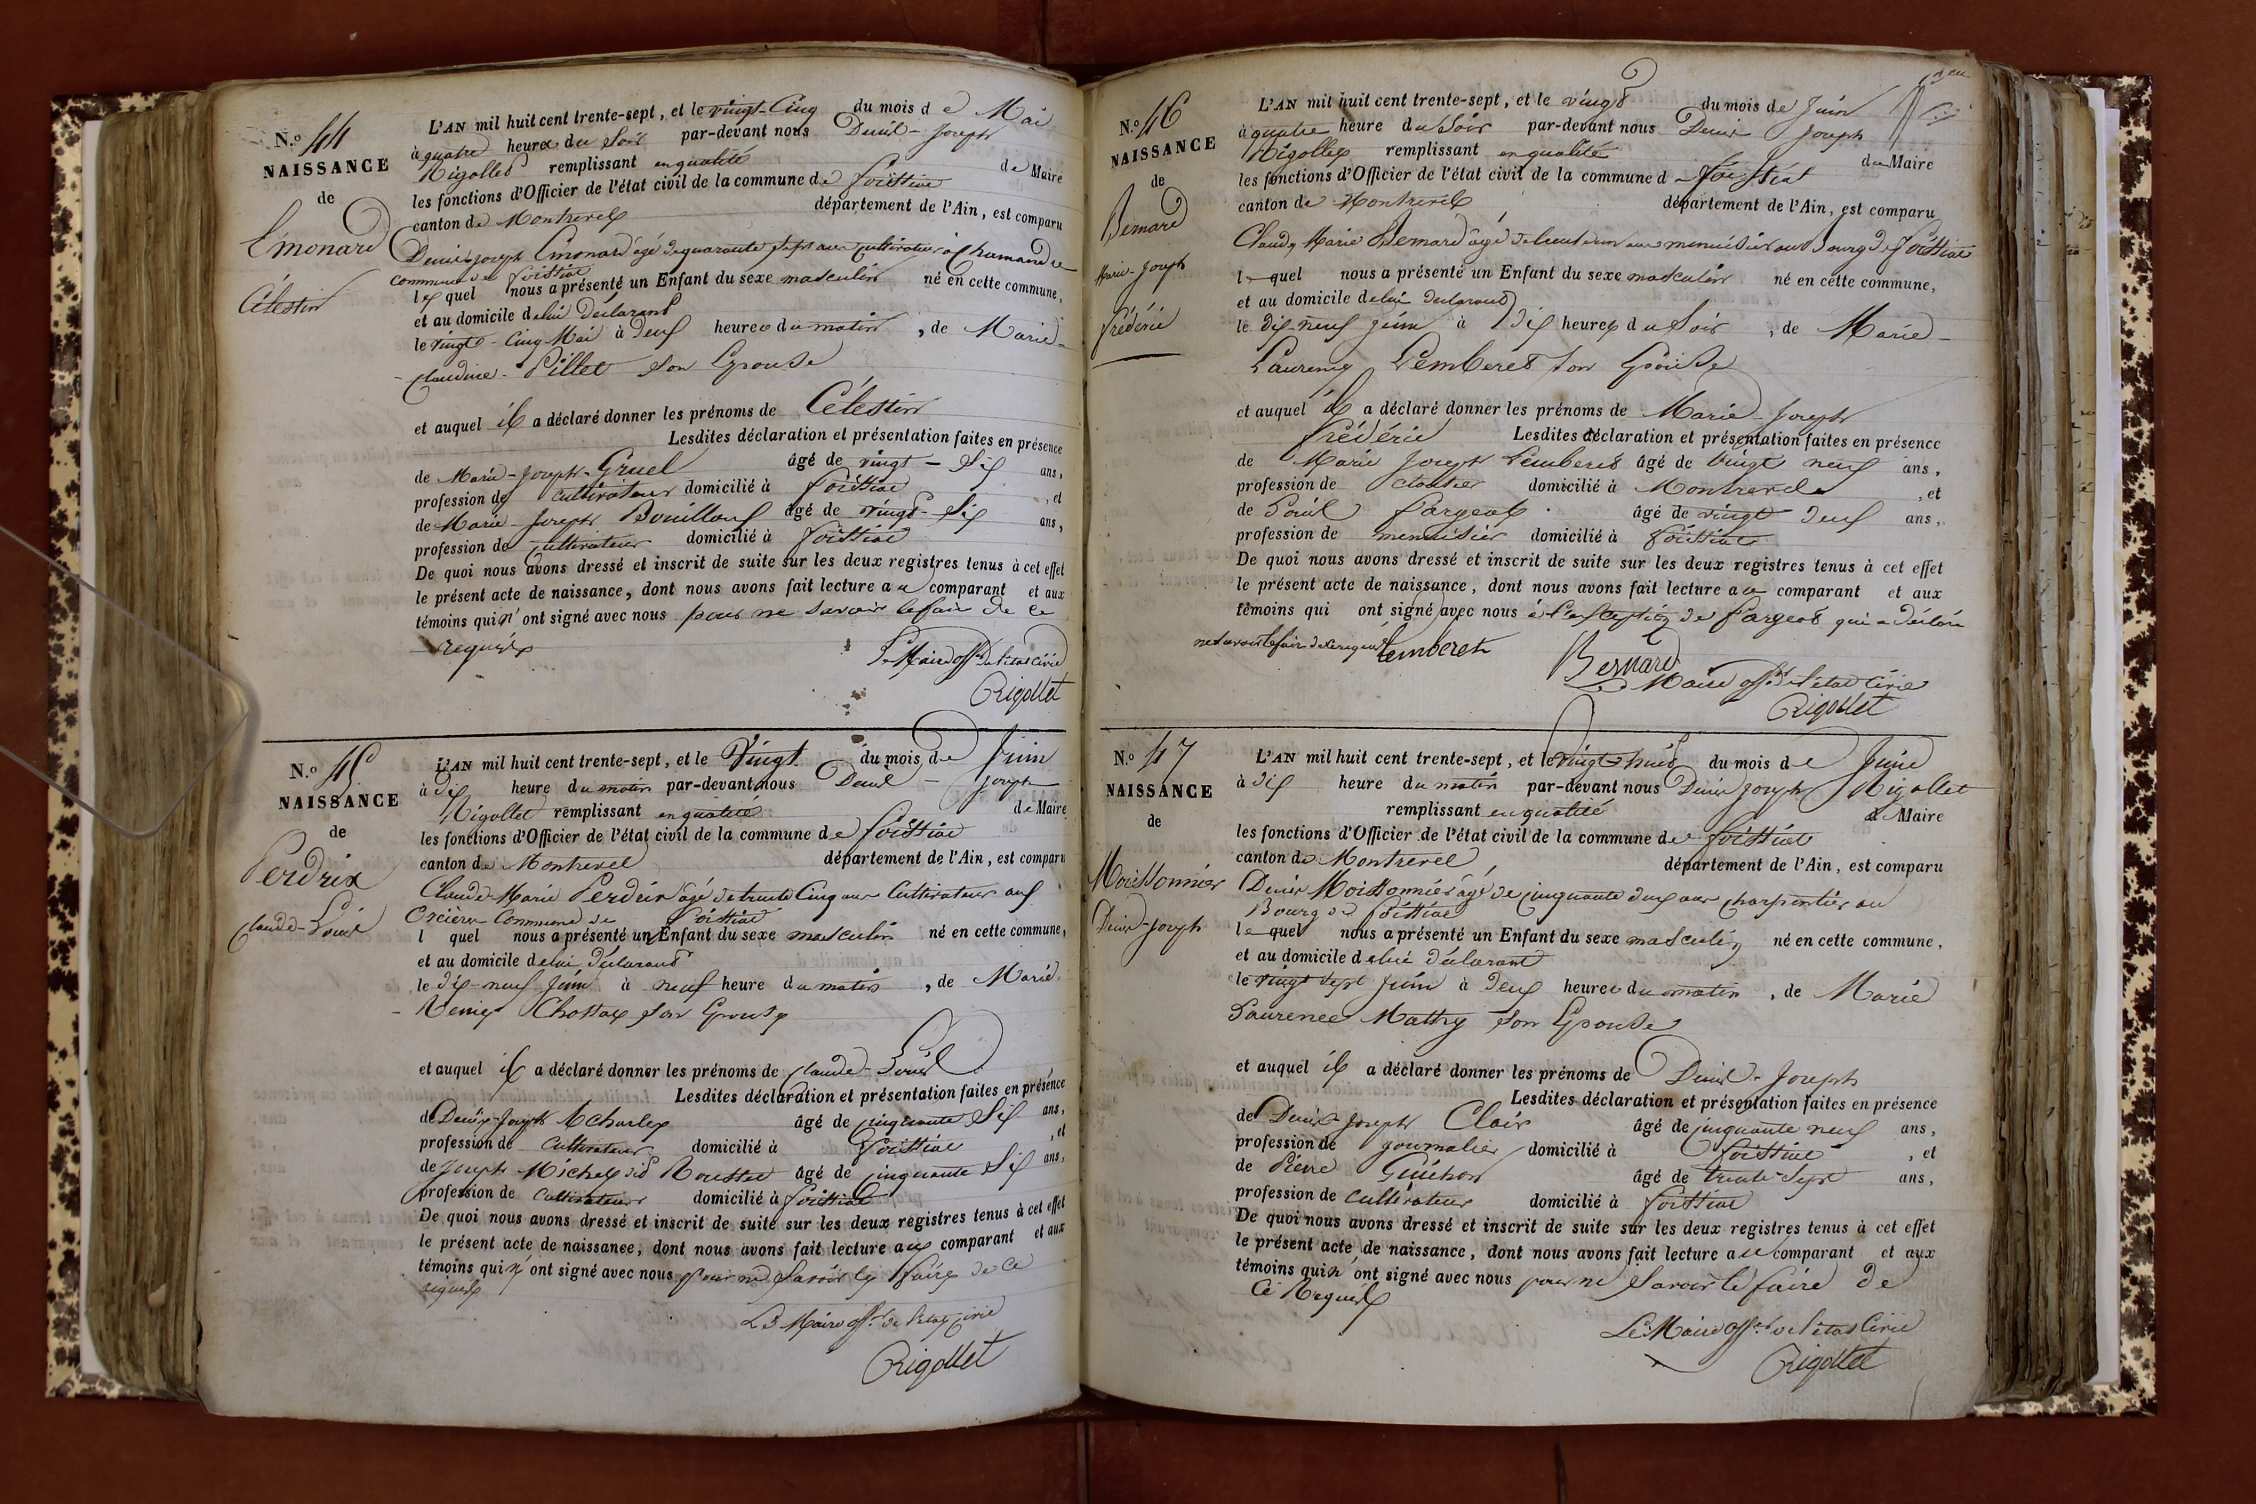 N.º 44
NAISSANCE
de
Emonard
Célestin
L'AN mil huit cent trente-sept, et le vingt-Cinq du mois de Mai
à quatre heures du Soir par-devant nous Denis-Joseph
Rigollet remplissant en qualité de Maire
les fonctions d'Officier de l'état civil de la commune de Foissiat
canton de Montrevel département de l'Ain, est comparu
Denis Joseph Emonard âgé de quarante Sept ans cultivateur à Chamandre
commune de Foissiat
lequel nous a présenté un Enfant du sexe masculin né en cette commune,
et au domicile de lui déclarant
le vingt-Cinq Mai à Deux heures du matin, de Marie-
Claudine Pillet son Epouse
et auquel il a déclaré donner les prénoms de Célestin
Lesdites déclaration et présentation faites en présence
de Marie-Joseph Gruel âgé de vingt-Six ans,
profession de cultivateur domicilié à Foissiat, et
de Marie-Joseph Bouilloux âgé de vingt-Six ans,
profession de cultivateur domicilié à Foissiat
De quoi nous avons dressé et inscrit de suite sur les deux registres tenus à cet effet
le présent acte de naissance, dont nous avons fait lecture au comparant et aux
témoins qui n'ont signé avec nous pour ne savoir le faire de ce
requis
Le Maire off. de l'état Civil
Rigollet
N.º 45
NAISSANCE
de
Perdrix
Claude-Louis
L'AN mil huit cent trente-sept, et le Vingt du mois de Juin
à Dix heure du matin par-devant nous Denis-Joseph
Rigollet remplissant en qualité de Maire
les fonctions d'Officier de l'état civil de la commune de Foissiat
canton de Montrevel département de l'Ain, est comparu
Claude-Marie Perdrix âgé de trente Cinq ans Cultivateur aux
Orcières Commune de Foissiat
lequel nous a présenté un Enfant du sexe masculin né en cette commune,
et au domicile de lui déclarant
le dix-neuf Juin à neuf heure du matin, de Marie
Chossat son Epouse
et auquel il a déclaré donner les prénoms de Claude-Louis
Lesdites déclaration et présentation faites en présence
de Denis-Joseph âgé de cinquante Six ans,
profession de Cultivateur domicilié à Foissiat, et
de Joseph Michel dit Rousset âgé de cinquante Six ans,
profession de Cultivateur domicilié à Foissiat
De quoi nous avons dressé et inscrit de suite sur les deux registres tenus à cet effet
le présent acte de naissance, dont nous avons fait lecture au comparant et aux
témoins qui n'ont signé avec nous pour ne Savoir le faire de ce
requis
Le Maire off. de l'état Civil
Rigollet
N.º 46
NAISSANCE
de
Bernard
Marie-Joseph
Frédéric
L'AN mil huit cent trente-sept, et le vingt du mois de Juin
à quatre heure du Soir par-devant nous Denis Joseph
Rigollet remplissant en qualité de Maire
les fonctions d'Officier de l'état civil de la commune de Foissiat
canton de Montrevel département de l'Ain, est comparu
Claude Marie Bernard âgé de trent un ans menuisier au bourg de Foissiat
lequel nous a présenté un Enfant du sexe masculin né en cette commune,
et au domicile de lui déclarant
le dix-neuf Juin à Dix heures du Soir, de Marie-
Laurence Lemberet son Epouse
et auquel il a déclaré donner les prénoms de Marie-Joseph
Frédéric Lesdites déclaration et présentation faites en présence
de Marie Joseph Lemberet âgé de Vingt neuf ans,
profession de cloutier domicilié à Montrevel, et
de Louis Fargeot âgé de vingt deux ans,
profession de menuisier domicilié à Foissiat
De quoi nous avons dressé et inscrit de suite sur les deux registres tenus à cet effet
le présent acte de naissance, dont nous avons fait lecture au comparant et aux
témoins qui ont signé avec nous à l'exception de Fargeot qui a déclaré
ne savoir le faire de ce requis Lemberet
Bernard
Le Maire off. de l'état Civil
Rigollet
N.º 47
NAISSANCE
de
Moissonnier
Denis-Joseph
L'AN mil huit cent trente-sept, et le vingt-huit du mois de Juin
à dix heure du matin par-devant nous Denis Joseph Rigollet
remplissant en qualité de Maire
les fonctions d'Officier de l'état civil de la commune de Foissiat
canton de Montrevel département de l'Ain, est comparu
Denis Moissonnier âgé de cinquante deux ans charpentier au
Bourg de Foissiat
lequel nous a présenté un Enfant du sexe masculin né en cette commune,
et au domicile de lui déclarant
le vingt Sept Juin à Deux heures du matin, de Marie
Laurence Mathy son Epouse
et auquel il a déclaré donner les prénoms de Denis-Joseph
Lesdites déclaration et présentation faites en présence
de Denis-Joseph Clair âgé de cinquante neuf ans,
profession de journalier domicilié à Foissiat, et
de Pierre Guichon âgé de trente-Sept ans,
profession de cultivateur domicilié à Foissiat
De quoi nous avons dressé et inscrit de suite sur les deux registres tenus à cet effet
le présent acte de naissance, dont nous avons fait lecture au comparant et aux
témoins qui n'ont signé avec nous pour ne Savoir le faire de
Ce Requis
Le Maire off. de l'état Civil
Rigollet